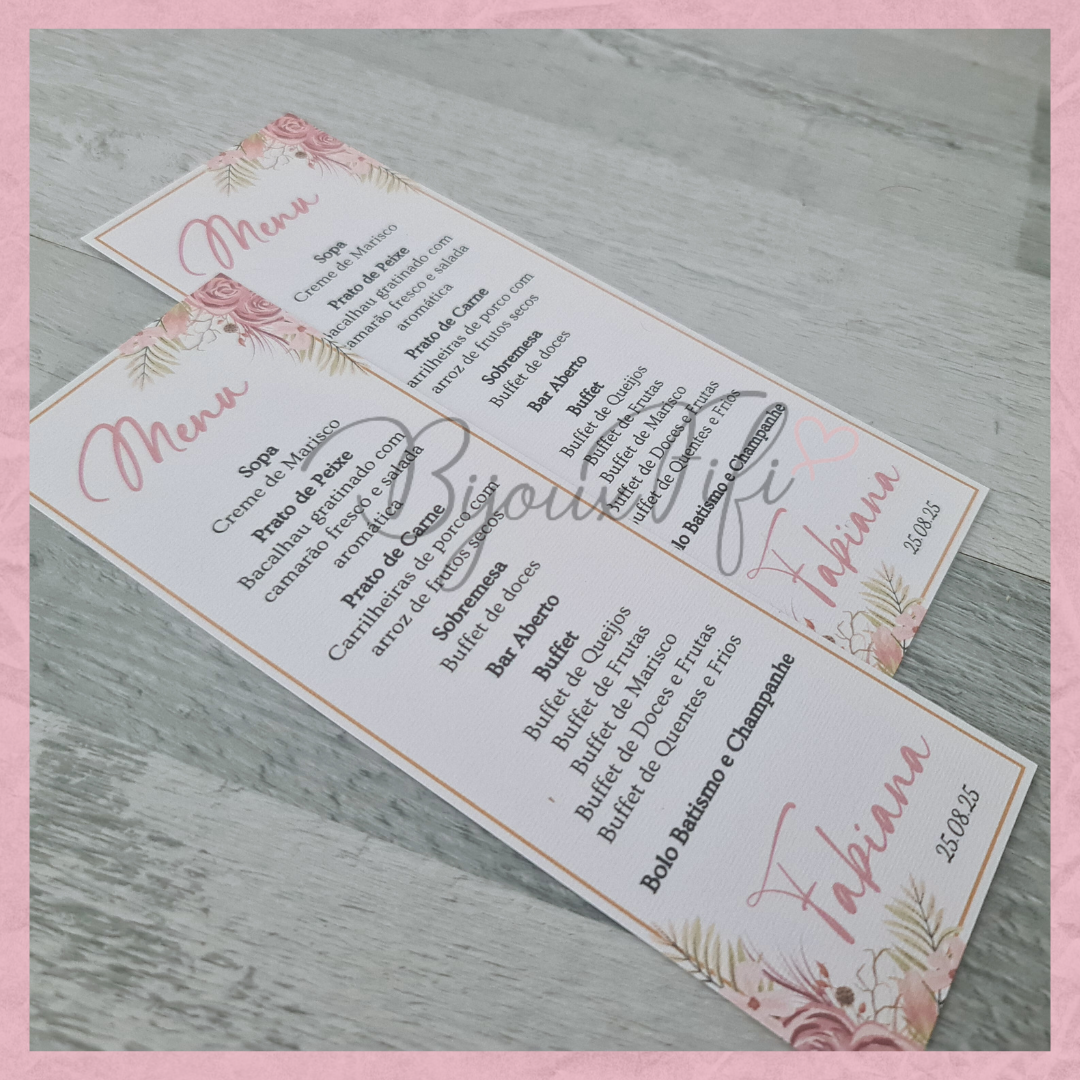 Menu
Sopa
Creme de Marisco
Prato de Peixe
Bacalhau gratinado com
camarão fresco e salada
aromática
Prato de Carne
Carrilheiras de porco com
arroz de frutos secos
Sobremesa
Buffet de doces
Bar Aberto
Buffet
Buffet de Queijos
Buffet de Frutas
Buffet de Marisco
Buffet de Doces e Frutas
Buffet de Quentes e Frios
Bolo Batismo e Champanhe
Fabiana
25.08.25
Menu
Sopa
Creme de Marisco
Prato de Peixe
acalhau gratinado com
amarão fresco e salada
aromática
Prato de Carne
arrilheiras de porco com
arroz de frutos secos
Sobremesa
Buffet de doces
Bar Aberto
Buffet
Buffet de Queijos
Buffet de Frutas
Buffet de Marisco
Buffet de Doces e Frutas
uffet de Quentes e Frios
olo Batismo e Champanhe
Fabiana
25.08.25
BijouxFifi